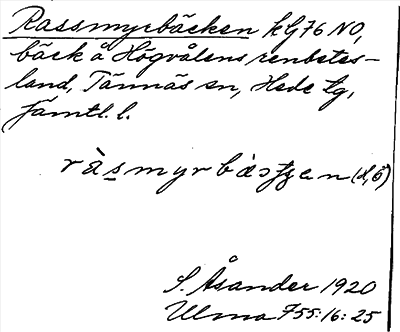 Rassmyrbäcken kG76 NO,
bäck å Högvålens renbetes-
land, Tännäs sn, Hede tg,
Jämtl. l.
S. Åsander 1920
Ulma 755:16:25